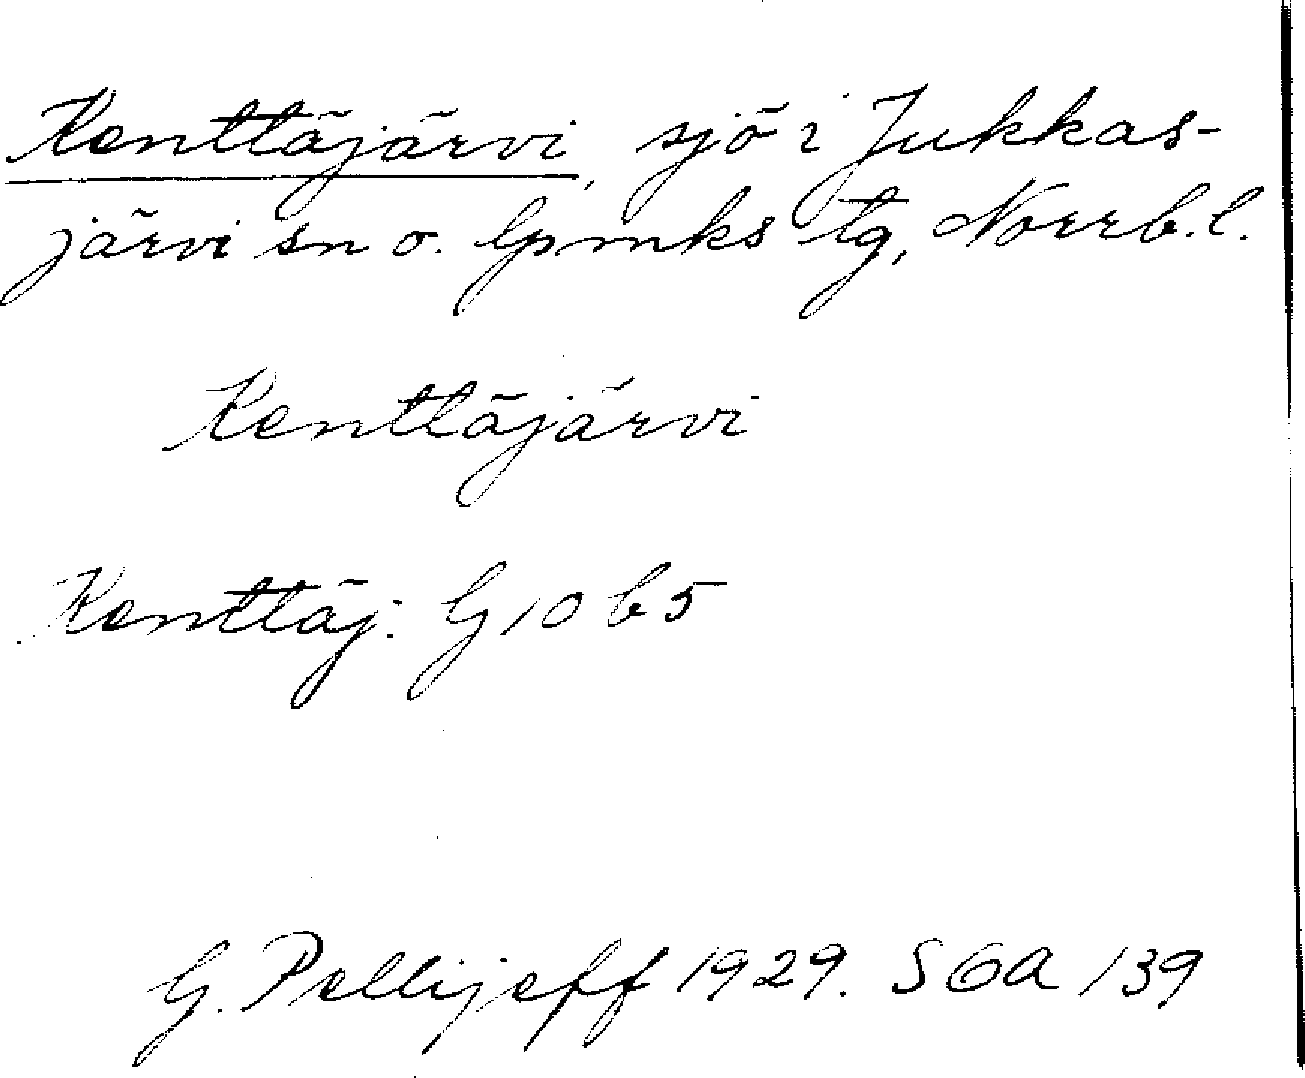 Kenttäjärvi, sjö i Jukkas-
järvi sn o. lpmks tg, Norrb.l.
Kenttäjärvi
Kenttäj: G10 b5
G. Pellijeff 1929. SOA 139